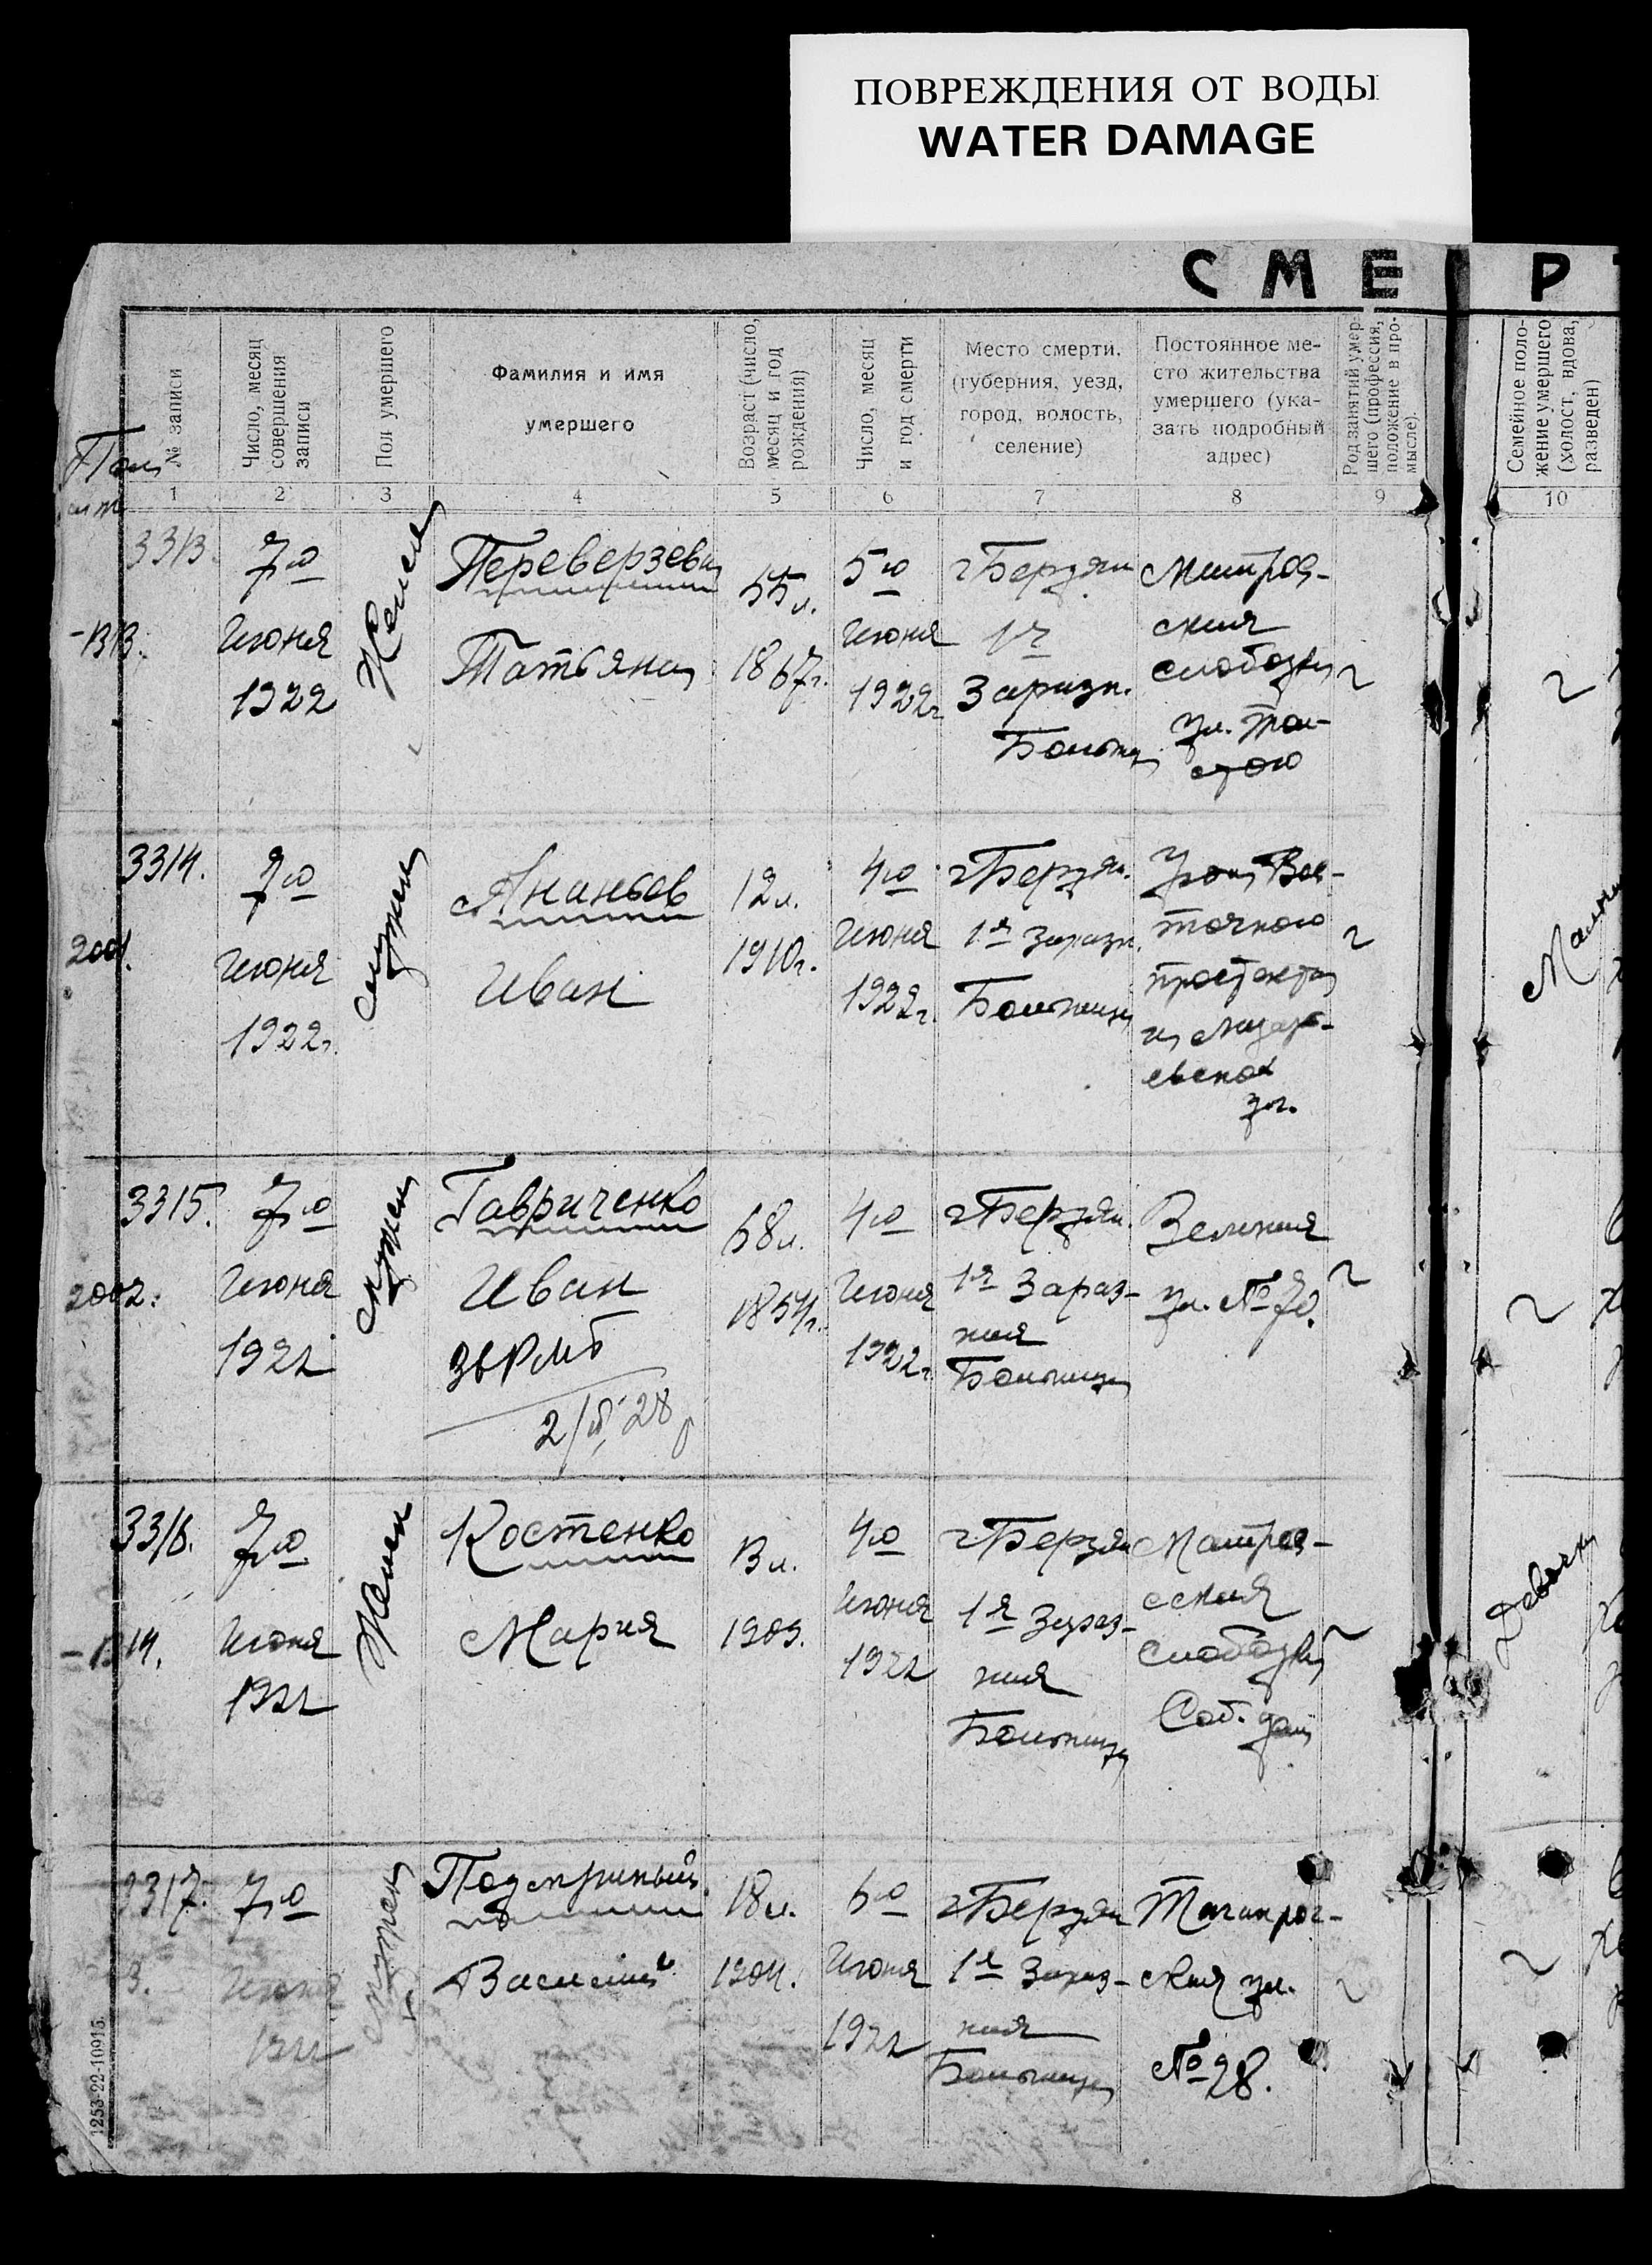 ПОВРЕЖДЕНИЯ ОТ ВОДЫ
WATER DAMAGE
СМЕР
№ записи
Число, месяц
совершения
записи
Пол умершего
Фамилия и имя
умершего
Возраст (число,
месяц и год
рождения)
Число, месяц
и год смерти
Место смерти.
(губерния, уезд,
город, волость,
селение)
Постоянное ме-
сто жительства
умершего (ука-
зать подробный
адрес)
Род занятий умер-
шего (профессия,
положение в про-
мысле).
Семейное поло-
жение умершего
(холост, вдова,
разведен)
1 2 3 4 5 6 7 8 9 10
3313
7го
Июня
1922
Переверзева
Татьяна
55 л.
1867г.
5го
Июня
1922г
г Бердян
1я
Заразн.
слободка
ул. Тол-
стого
3314.
2001.
7го
Июня
1922г.
мужск
Ананьев
Иван
12 л.
1910г.
4го
Июня
1922г.
г Бердян.
1я Заразн.
Больница
Восточного
проспекта
ул.
3315.
2002.
7го
Июня
1922
мужск
Гавриченко
Иван
ЗВРМБ
68 л.
1854г.
4го
Июня
1922г.
г Бердян.
1я Зараз-
ная
Больница
ул. № 70.
3316.
7го
Июня
1922
Женск
Костенко
Мария
13 л.
1909.
4го
Июня
1922
г Бердян
1я Зараз-
ная
Больница
Матрос-
ская
слободка
Соб. дом
Девочка
3317.
7го
Июня
1922
мужск
Василий
18 л.
1904.
Июня
1922
г Бердян
1я Зараз-
ная
Больница
Таганрог-
ская ул.
№ 28.
1253-22-10915.